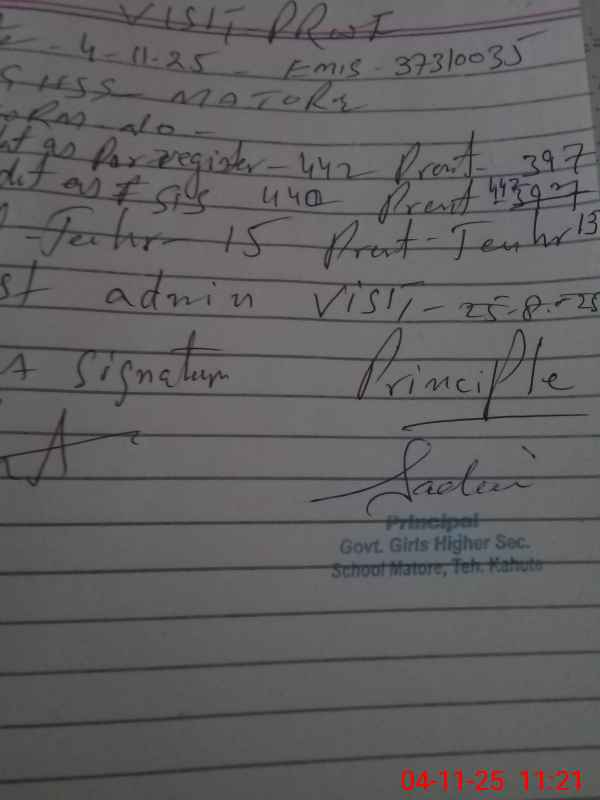 VISIT PRof
- 4-11-25 - EMIS - 37310035
GHSS MATORE
as Per register - 442 Prent - 397
as SIS 440 Prent 442 597
- Teahr - 15 Prent - Teahr 13
st admin VISIT, - 25-8.-25
A Signatum Principle
Sadai
Principal
Govt. Girls Higher Sec.
School Matore, Teh. Kahuta
04-11-25 11:21